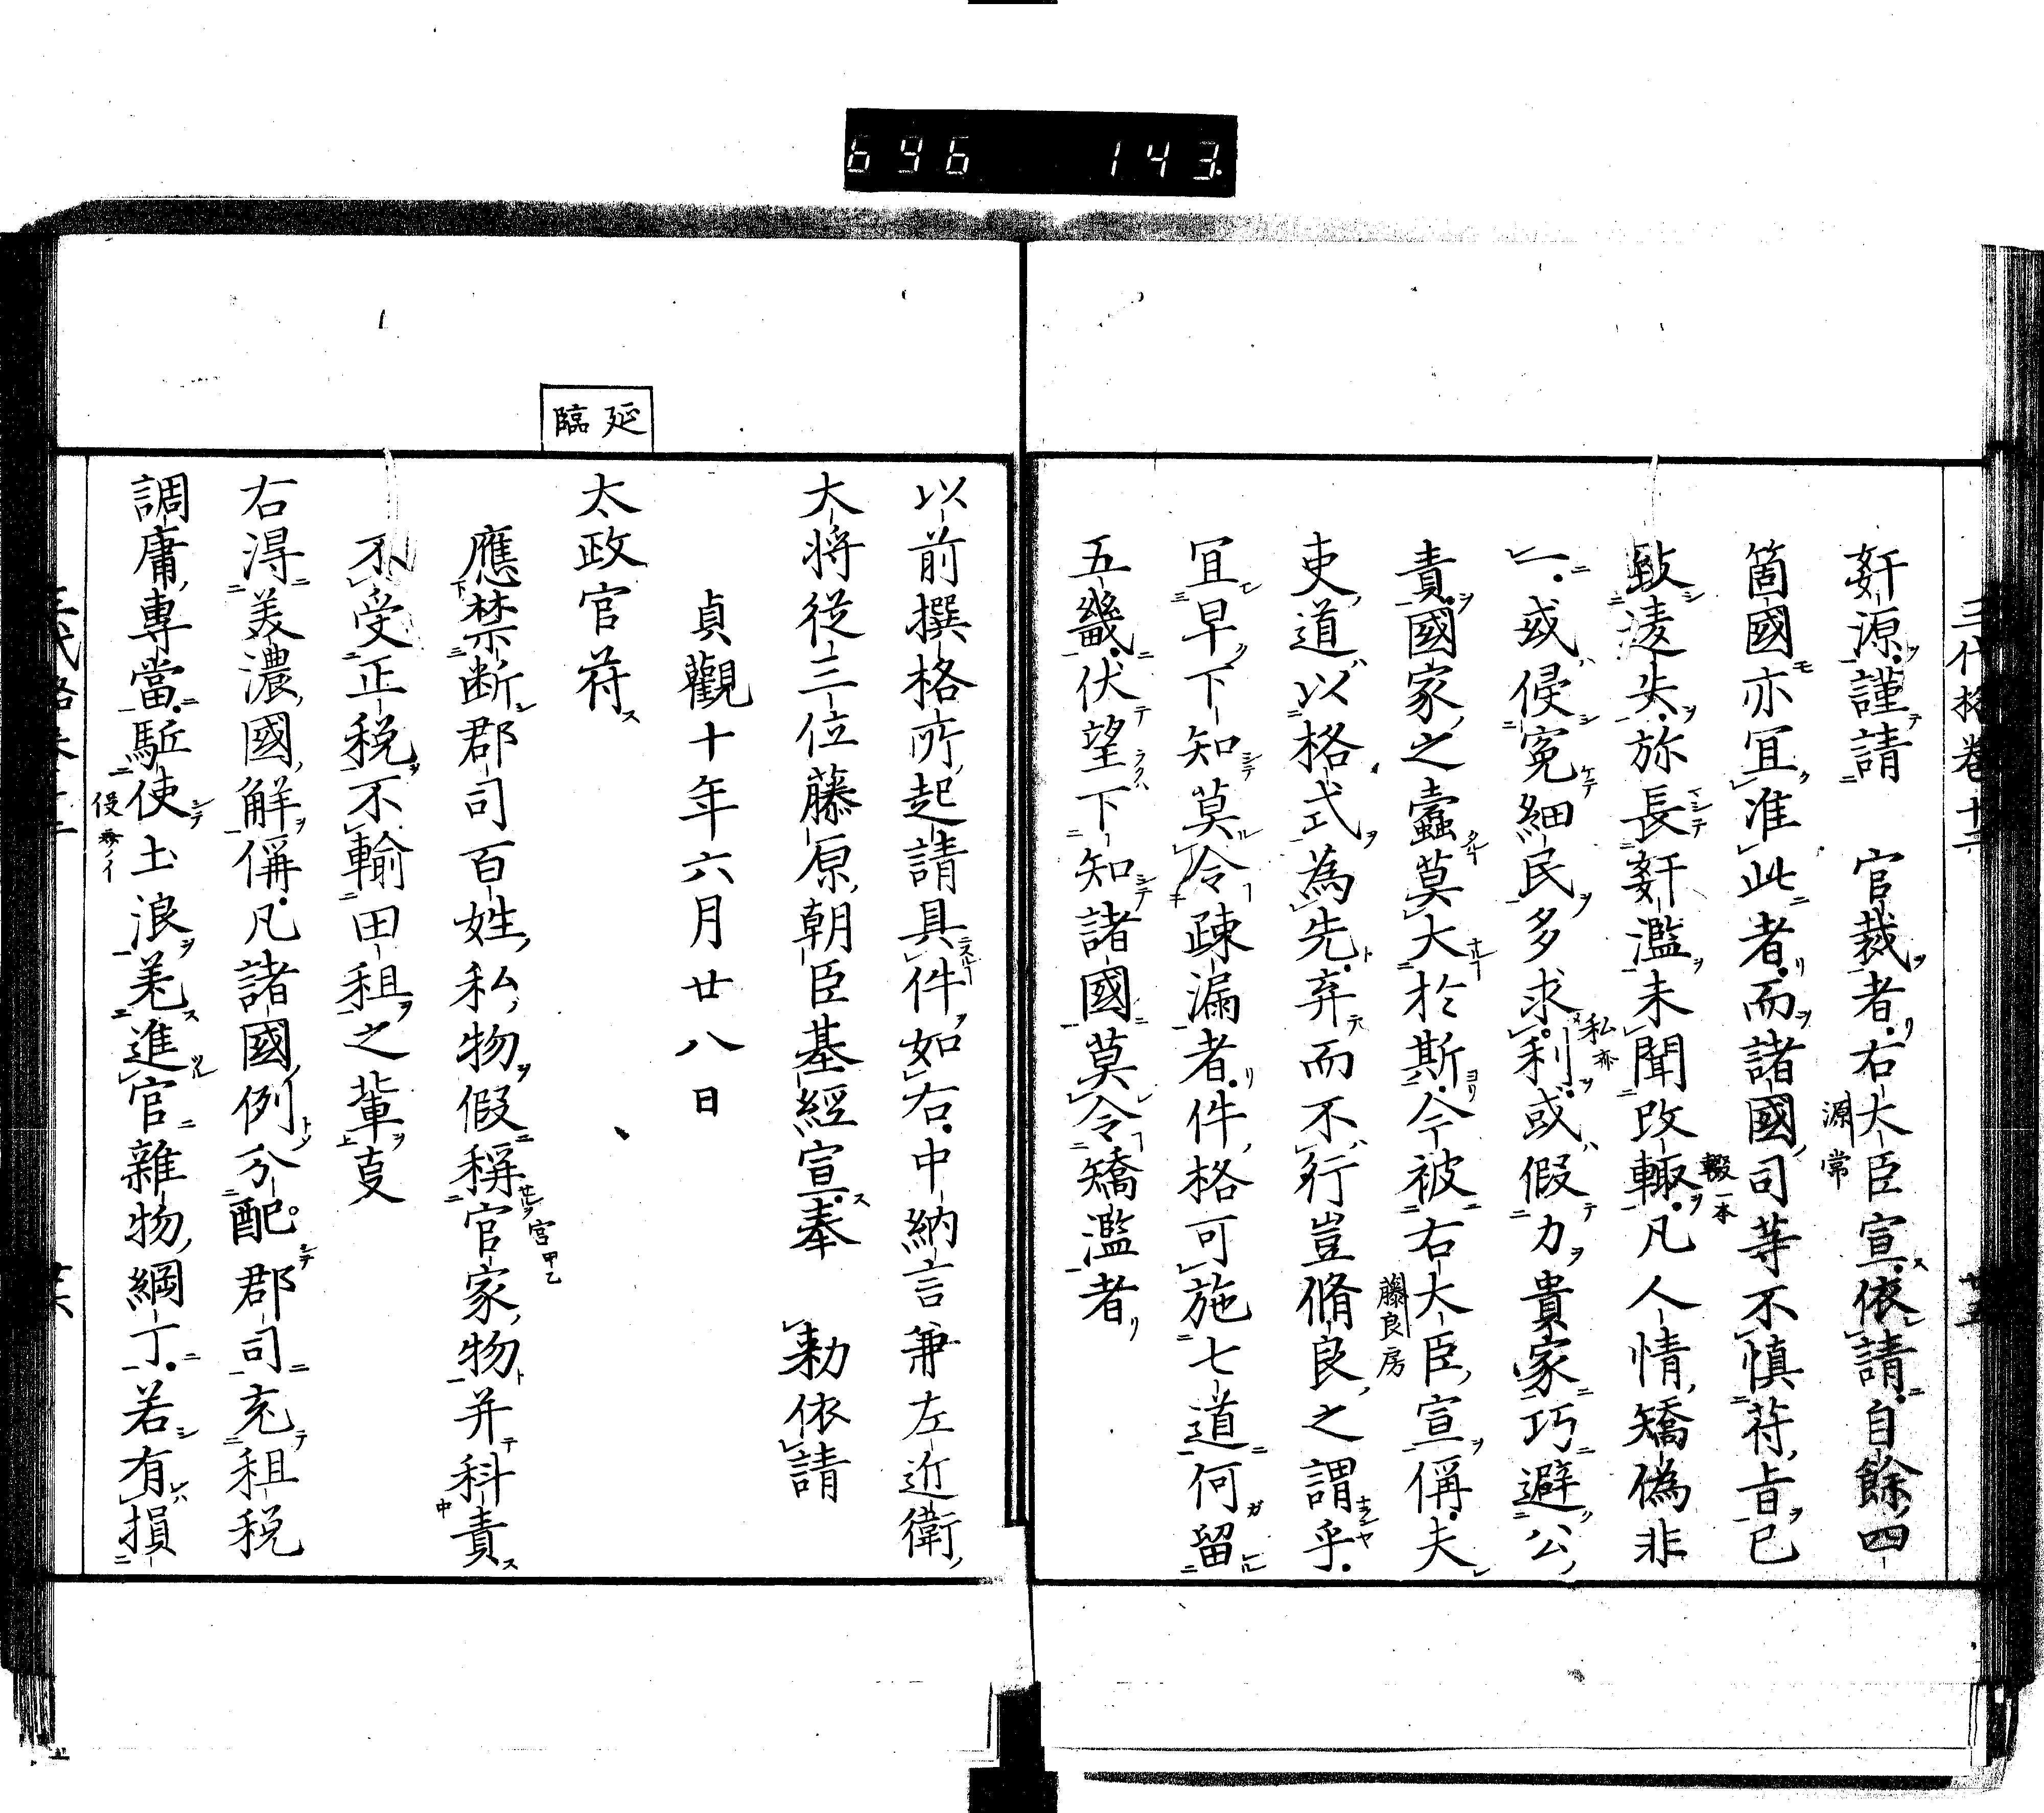 696 143
三代格卷十二 廿五
姧源謹請 官裁者右大臣宣依請自餘四
源常
箇國亦宜准此者而諸國司等不慎苻旨已
致淩失旀長姧濫未聞改輙凡人情矯偽非
輟一本
一或侵寃細民多求利或假力貴家巧避公
私亦
責國家之蠹莫大於斯今被右大臣宣偁夫
藤良房
吏道以格式為先弃而不行豈脩良之謂乎
宜早下知莫令疎漏者件格可施七道何留
五畿伏望下知諸國莫令矯濫者
以前撰格所起請具件如右中納言兼左近衛
大将従三位藤原朝臣基經宣奉 勅依請
貞觀十年六月廿八日
延臨
太政官苻
應禁断郡司百姓私物假稱官家物并科責
宮甲乙
不受正税不輸田租之輩㕝
右得美濃國解偁凡諸國例分配郡司充租税
調庸專當駈使土浪差進官雜物綱丁若有損
役